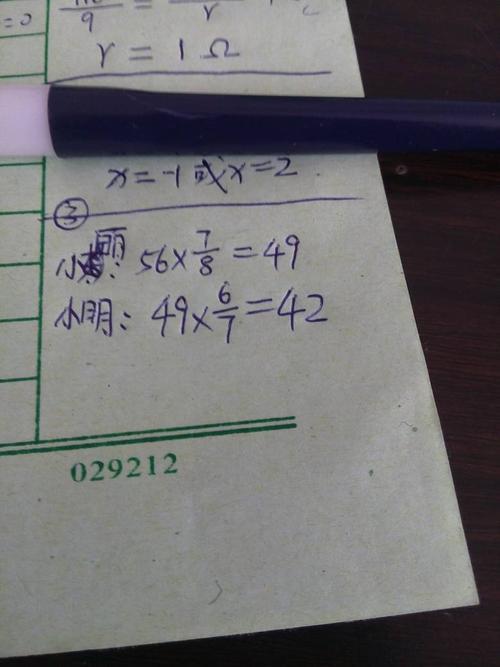 =0
9 = r
r = 1 Ω
x=-1或x=2.
③
小丽: 56×7/8=49
小明: 49×6/7=42
029212